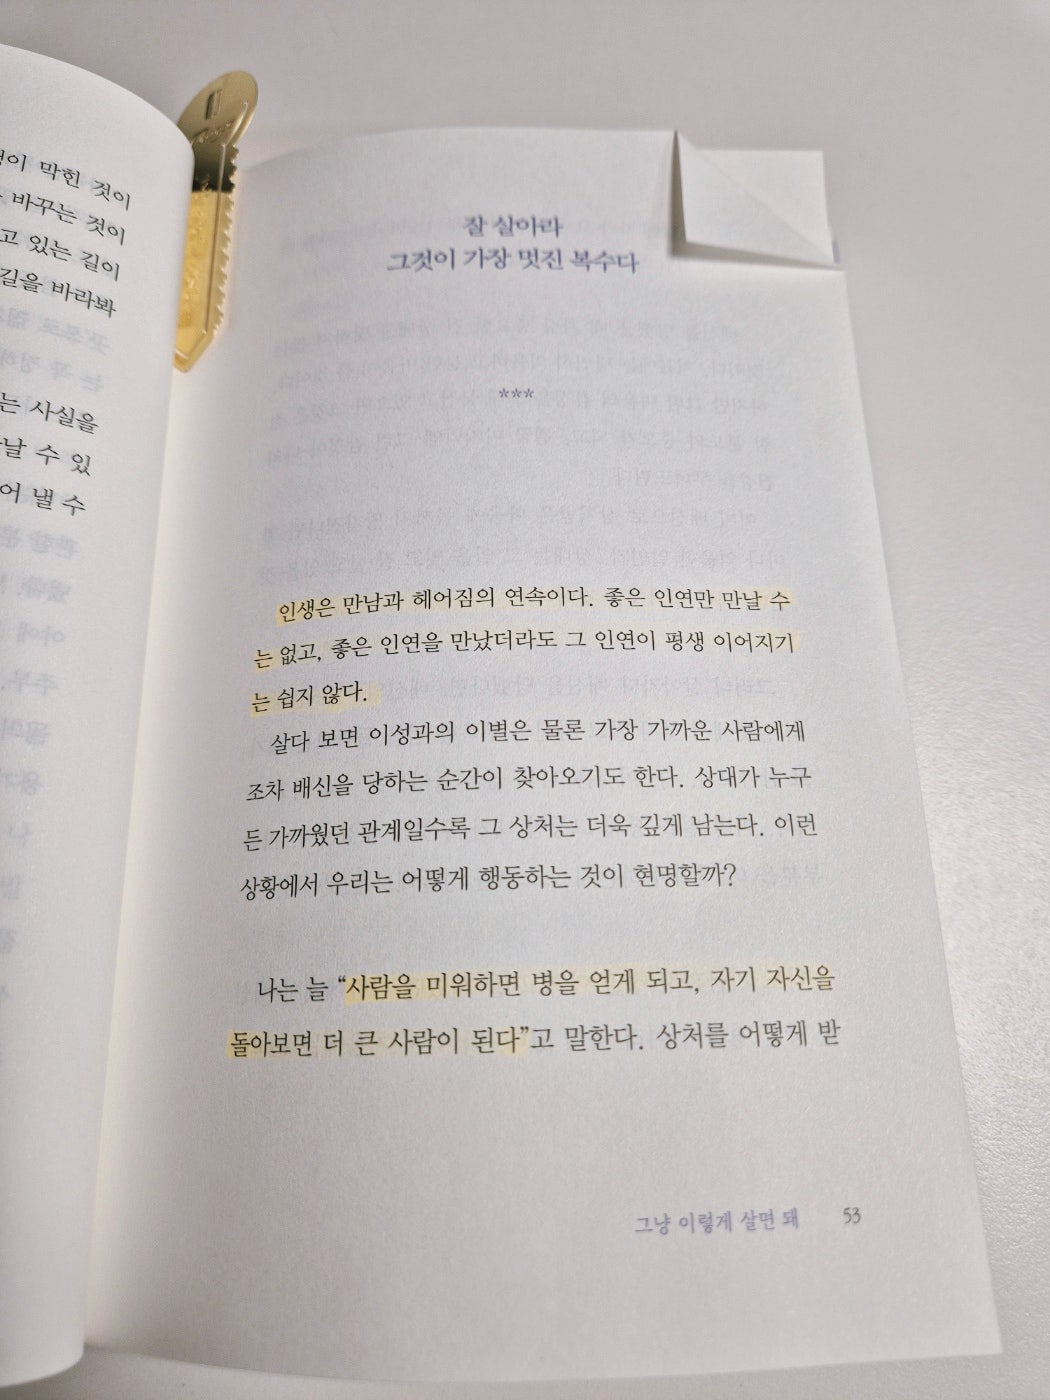 막힌 것이
바꾸는 것이
고 있는 길이
길을 바라봐
는 사실을
날 수 있
어 낼 수
잘 살아라
그것이 가장 멋진 복수다
***
인생은 만남과 헤어짐의 연속이다. 좋은 인연만 만날 수
는 없고, 좋은 인연을 만났더라도 그 인연이 평생 이어지기
는 쉽지 않다.
살다 보면 이성과의 이별은 물론 가장 가까운 사람에게
조차 배신을 당하는 순간이 찾아오기도 한다. 상대가 누구
든 가까웠던 관계일수록 그 상처는 더욱 깊게 남는다. 이런
상황에서 우리는 어떻게 행동하는 것이 현명할까?
나는 늘 “사람을 미워하면 병을 얻게 되고, 자기 자신을
돌아보면 더 큰 사람이 된다”고 말한다. 상처를 어떻게 받
그냥 이렇게 살면 돼 53